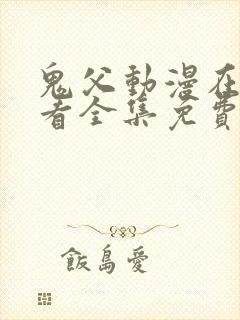 鬼父動漫在
看全集免費
飯島愛